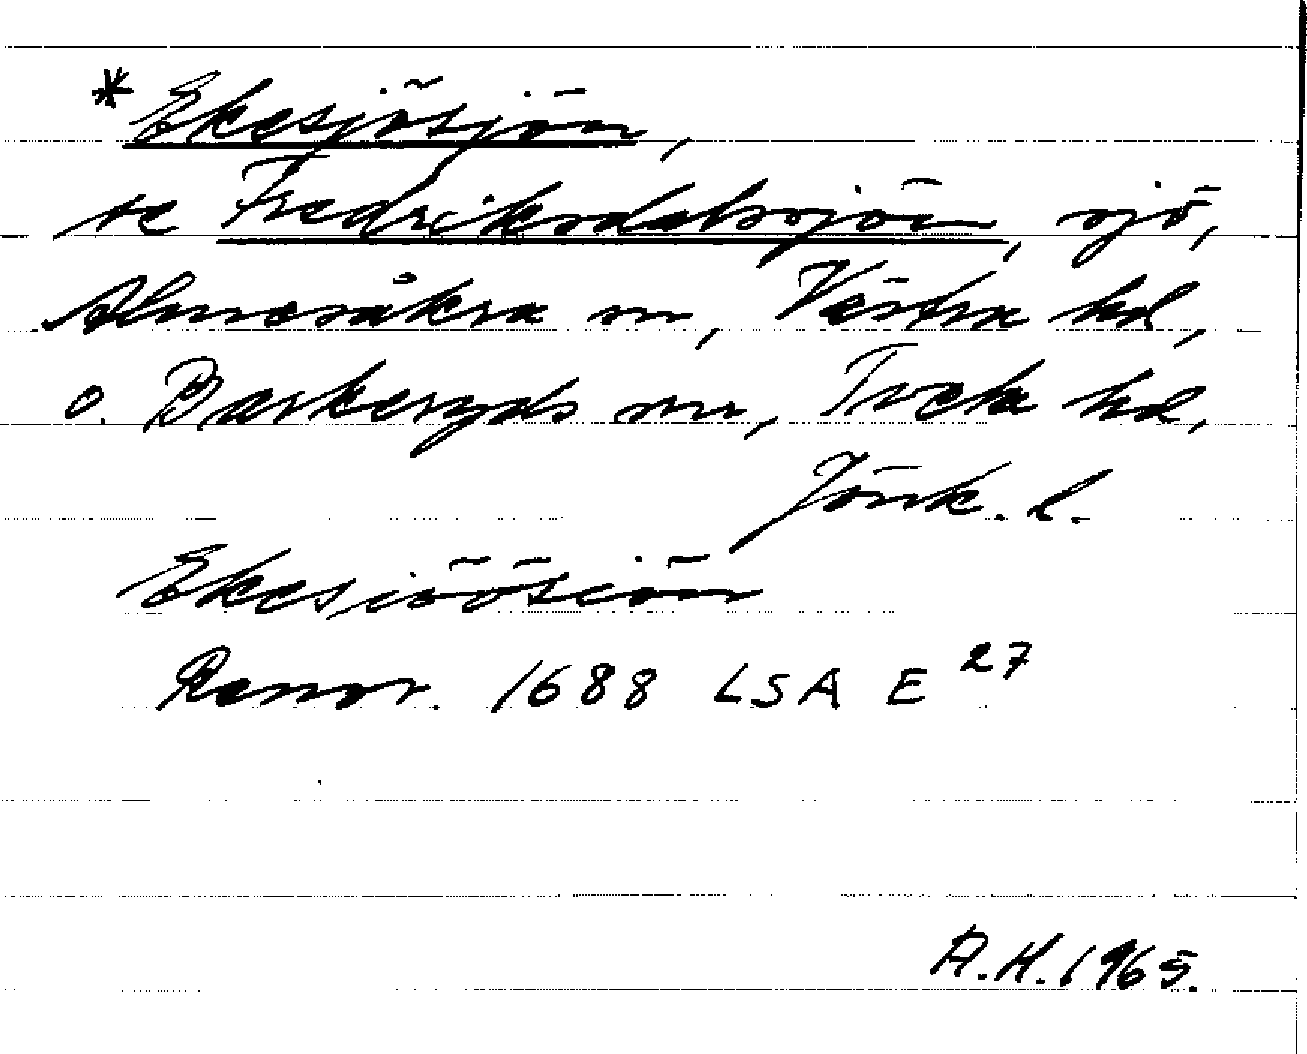 * Ekesjösjön,
se Fredriksdalssjön, sjö,
Almesåkra sn, Västra hd,
o. Barkeryds sn, Tveta hd,
Jönk. l.
Ekesiöösiön
Rannr. 1688 LSA E 27
A.H. 1965.